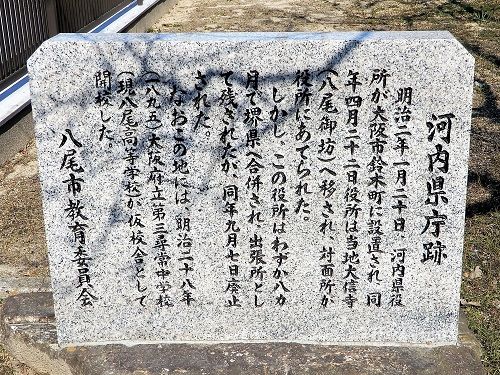 河内県庁跡
明治二年一月二十日、河内県役
所が大阪市鈴木町に設置され、同
年四月二十二日役所は当地大信寺
(八尾御坊)へ移され、対面所が
役所にあてられた。
しかし、この役所はわずか八カ
月で堺県へ合併され、出張所とし
て残されたが、同年九月七日廃止
された。
なおこの地には、明治二十八年
(一八九五)大阪府立第三尋常中学校
(現八尾高等学校)が仮校舎として
開校した。
八尾市教育委員会